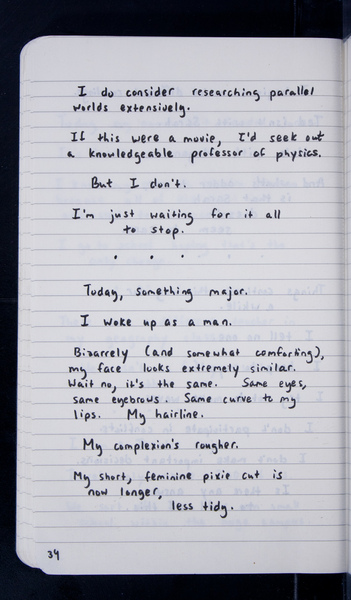 I do consider researching parallel
worlds extensively.
If this were a movie, I'd seek out
a knowledgeable professor of physics.
But I don't.
I'm just waiting for it all
to stop.
. . .
Today, something major.
I woke up as a man.
Bizarrely (and somewhat comforting),
my face looks extremely similar.
Wait no, it's the same. Same eyes,
same eyebrows. Same curve to my
lips. My hairline.
My complexion's rougher.
My short, feminine pixie cut is
now longer,
less tidy.
34